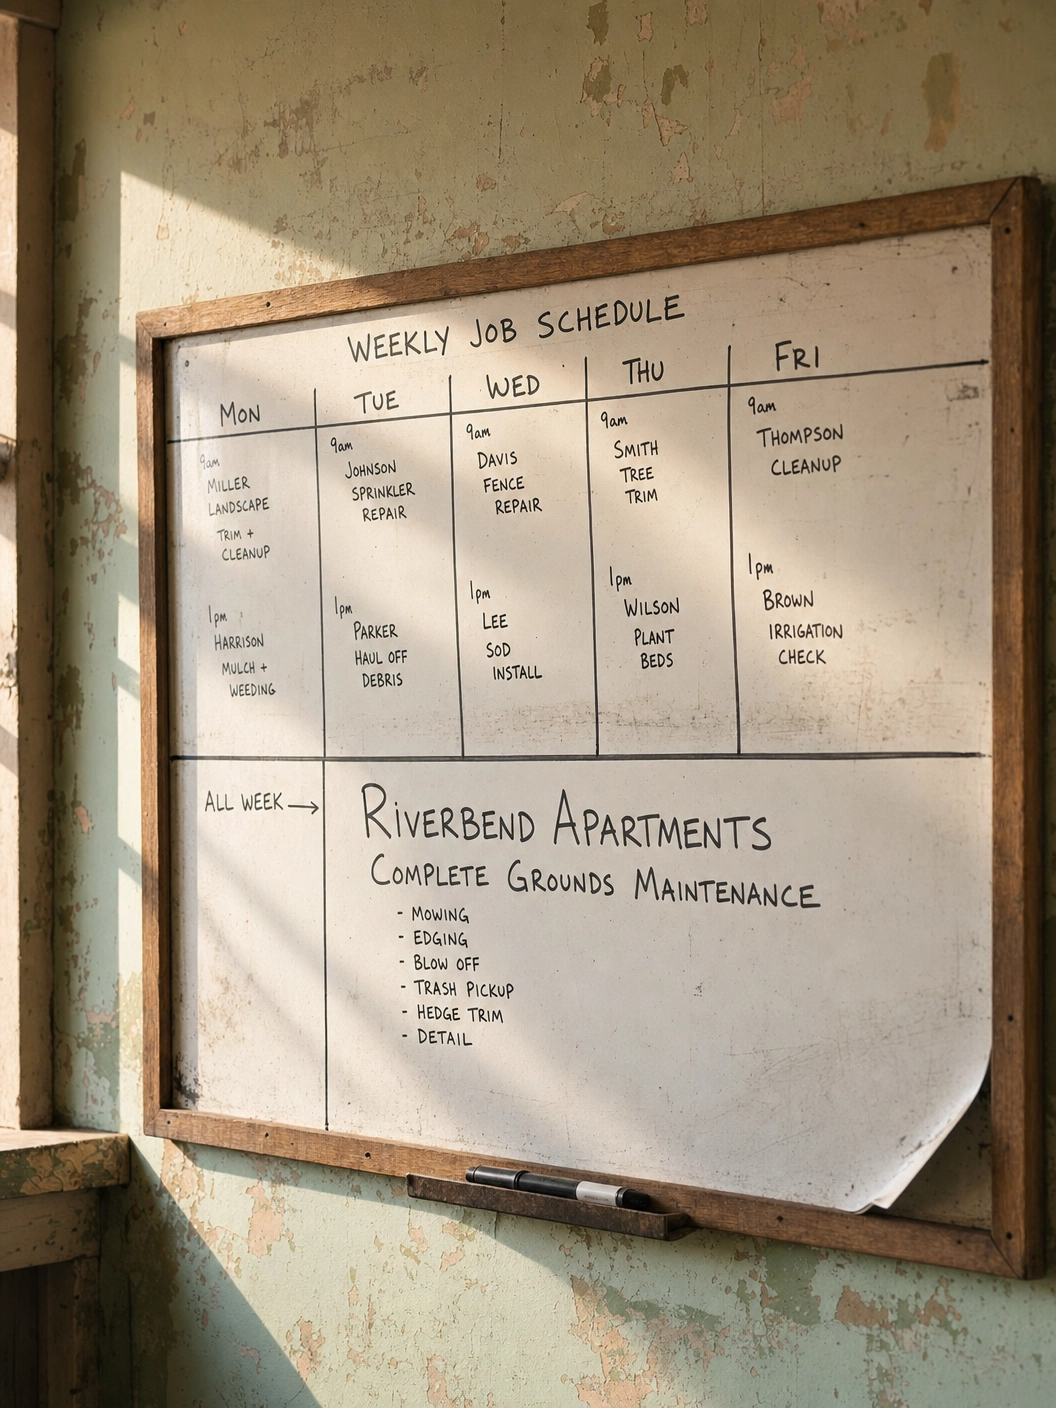 WEEKLY JOB SCHEDULE
MON
9am
MILLER
LANDSCAPE
TRIM +
CLEANUP
1pm
HARRISON
MULCH +
WEEDING
TUE
9am
JOHNSON
SPRINKLER
REPAIR
1pm
PARKER
HAUL OFF
DEBRIS
WED
9am
DAVIS
FENCE
REPAIR
1pm
LEE
SOD
INSTALL
THU
9am
SMITH
TREE
TRIM
1pm
WILSON
PLANT
BEDS
FRI
9am
THOMPSON
CLEANUP
1pm
BROWN
IRRIGATION
CHECK
ALL WEEK →
RIVERBEND APARTMENTS
COMPLETE GROUNDS MAINTENANCE
- MOWING
- EDGING
- BLOW OFF
- TRASH PICKUP
- HEDGE TRIM
- DETAIL